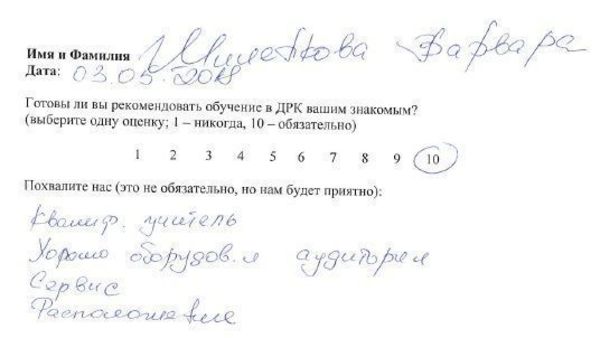 Имя и Фамилия Миленкова Варвара
Дата: 03.05.2018
Готовы ли вы рекомендовать обучение в ДРК вашим знакомым?
(выберите одну оценку; 1 – никогда, 10 – обязательно)
1 2 3 4 5 6 7 8 9 10
Похвалите нас (это не обязательно, но нам будет приятно):
Квалиф. учитель
Хорошо оборудов. аудитория
Сервис
Расположение